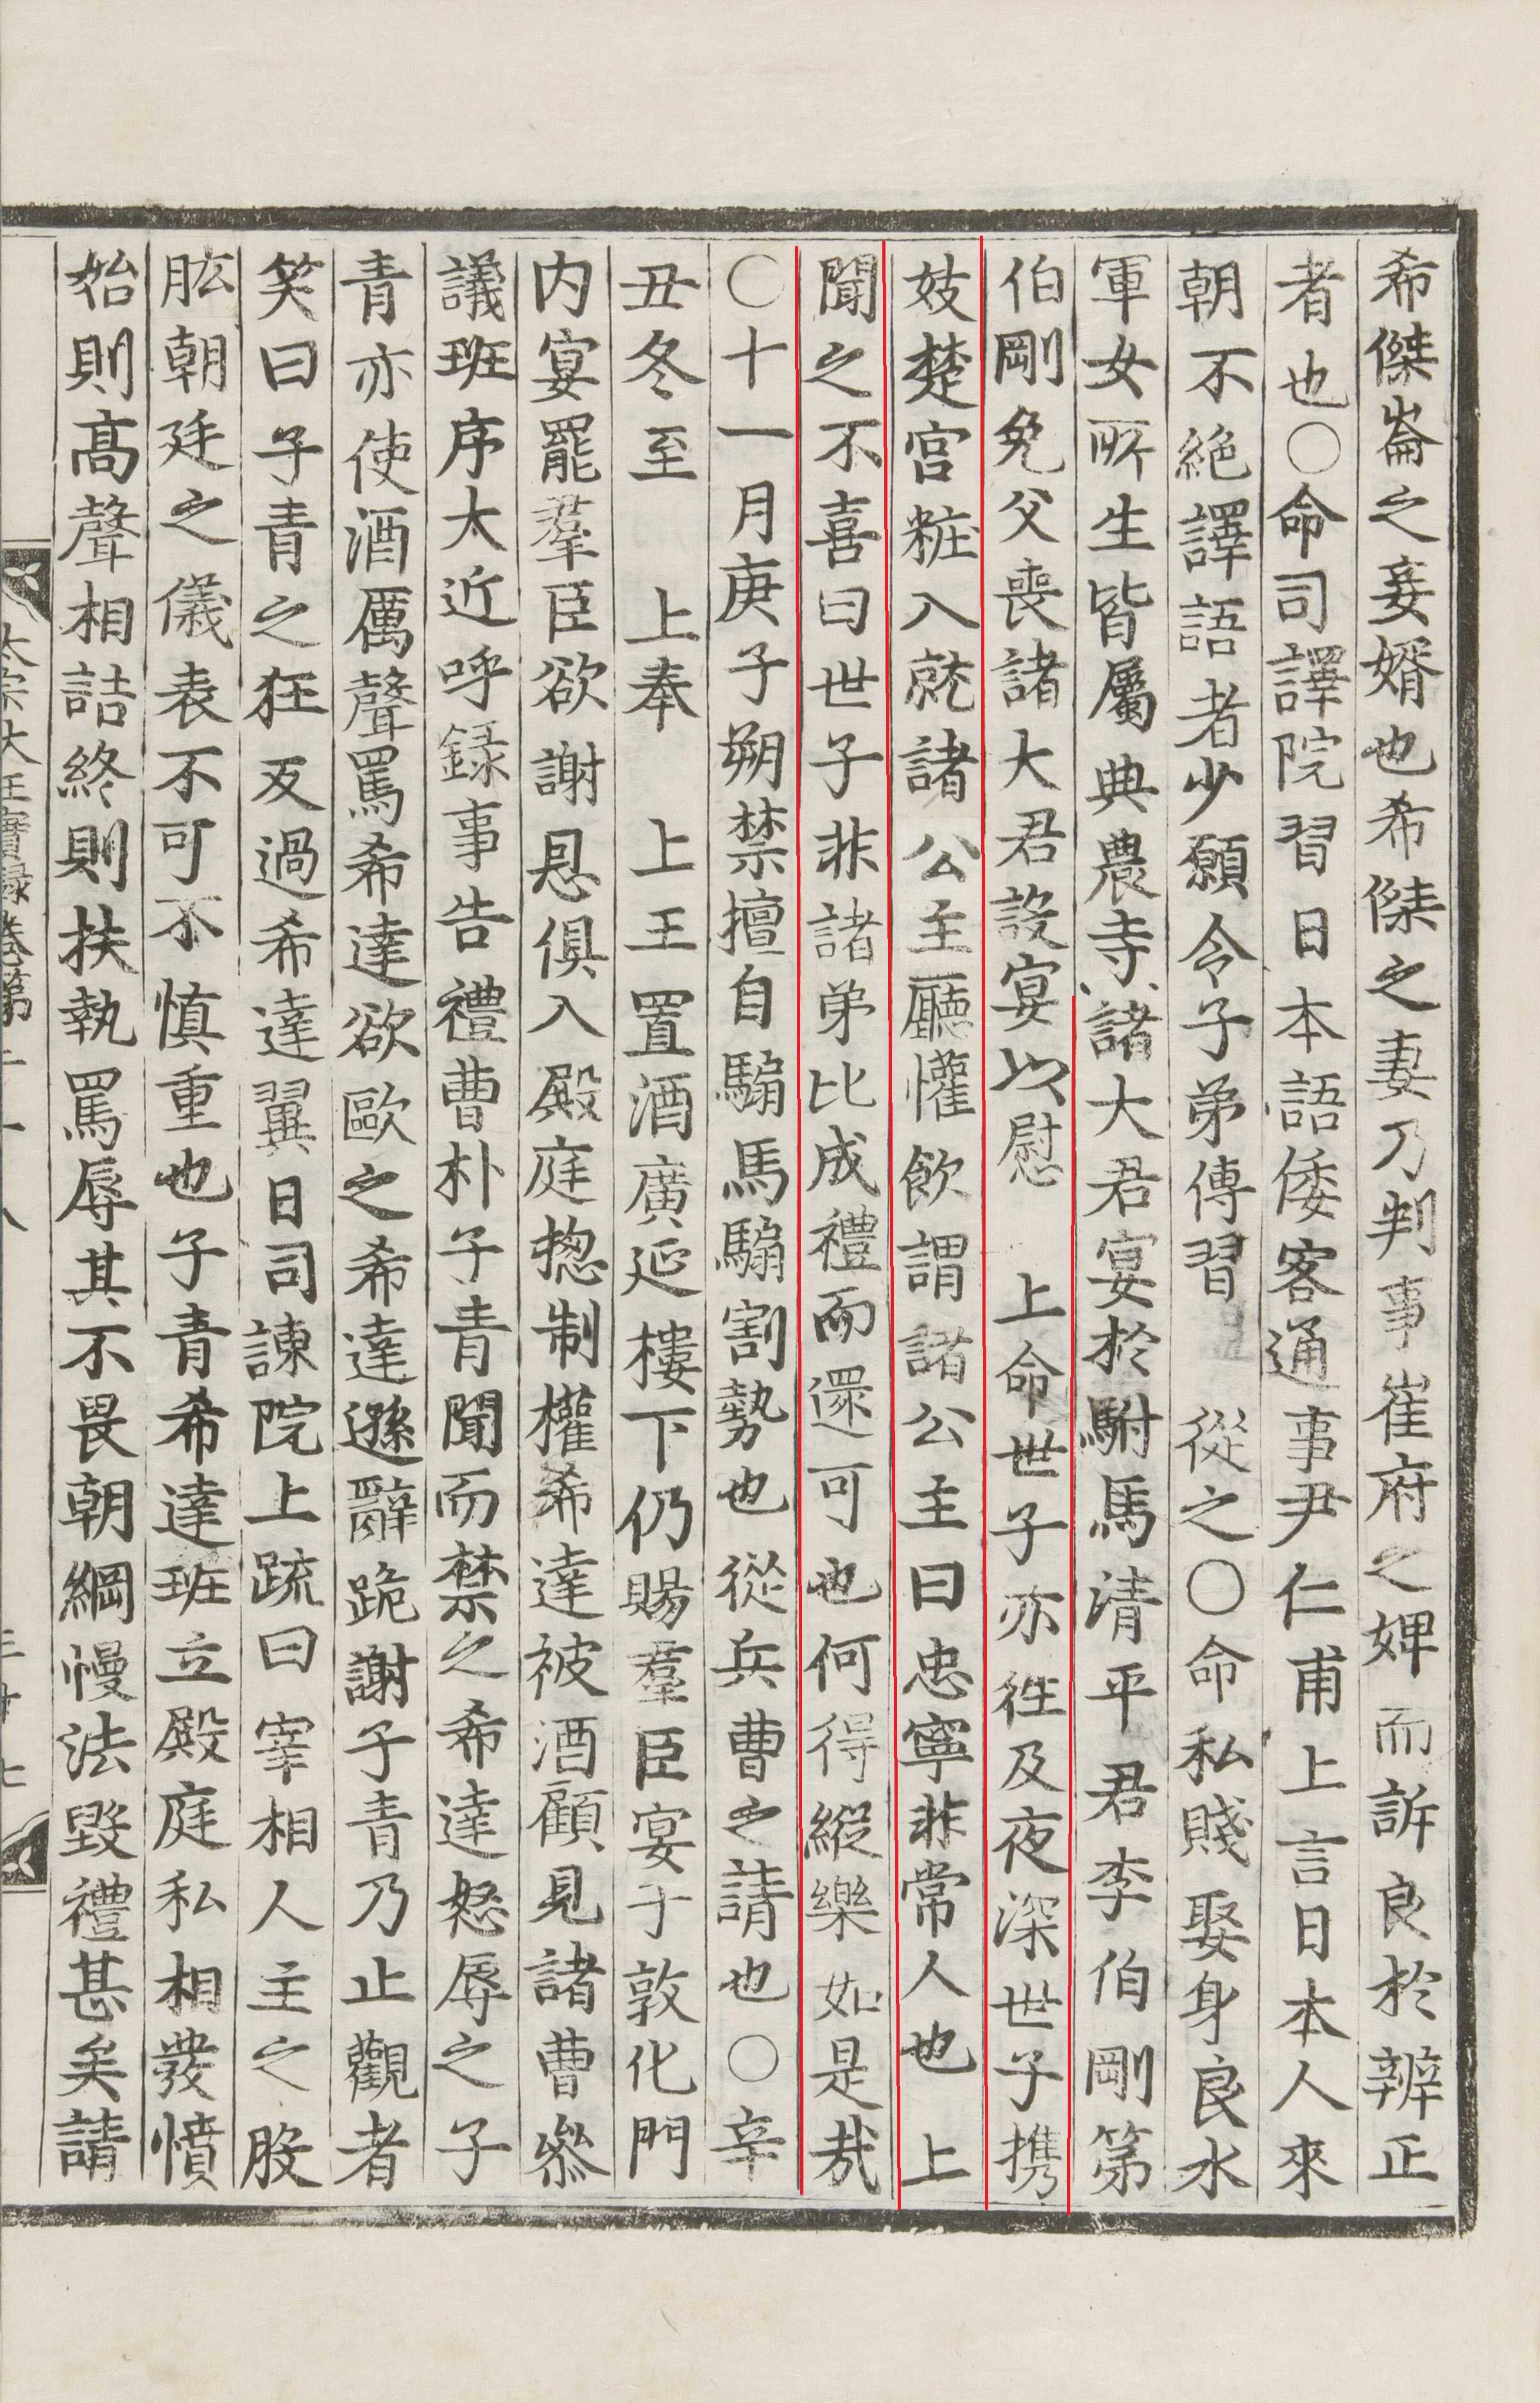 希傑崙之妾婿也希傑之妻乃判事崔府之婢而訴良於辨正
者也○命司譯院習日本語倭客通事尹仁甫上言日本人來
朝不絶譯語者少願令子弟傳習 從之○命私賤娶身良水
軍女所生皆屬典農寺諸大君宴於駙馬清平君李伯剛第
伯剛免父喪諸大君設宴以慰 上命世子亦徃及夜深世子携
妓楚宮粧入就諸公主廳懽飮謂諸公主曰忠寧非常人也 上
聞之不喜曰世子非諸弟比成禮而還可也何得縱樂如是哉
○十一月庚子朔禁擅自騸馬騸割勢也從兵曹之請也○辛
丑冬至 上奉 上王置酒廣延樓下仍賜羣臣宴于敦化門
内宴罷羣臣欲謝恩俱入殿庭揔制權希達被酒顧見諸曹叅
議班序太近呼録事告禮曹朴子青聞而禁之希達怒辱之子
青亦使酒厲聲罵希達欲歐之希達遜辭跪謝子青乃止觀者
笑曰子青之狂又過希達翼日司諫院上疏曰宰相人主之股
肱朝廷之儀表不可不愼重也子青希達班立殿庭私相發憤
始則高聲相詰終則扶執罵辱其不畏朝綱慢法毀禮甚矣請
太宗大王實録卷第二十八